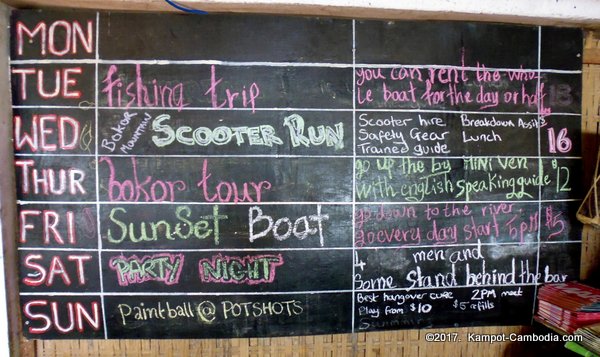 MON
TUE
fishing trip
you can rent the who
le boat for the day or half
WED
Bokor
Mountain
SCOOTER RUN
Scooter hire Breakdown Assist
Safety Gear Lunch
Trained guide
16
THUR
bokor tour
go up the by mini ven
with english speaking guide
$12
FRI
SunSet Boat
go down to the river
go every day start 5pm
$5
SAT
PARTY NIGHT
4 men and
Some stand behind the bar
SUN
Paintball @ POTSHOTS
Best hangover cure 2PM meet
Play from $10 $5 refills
©2017. Kampot-Cambodia.com